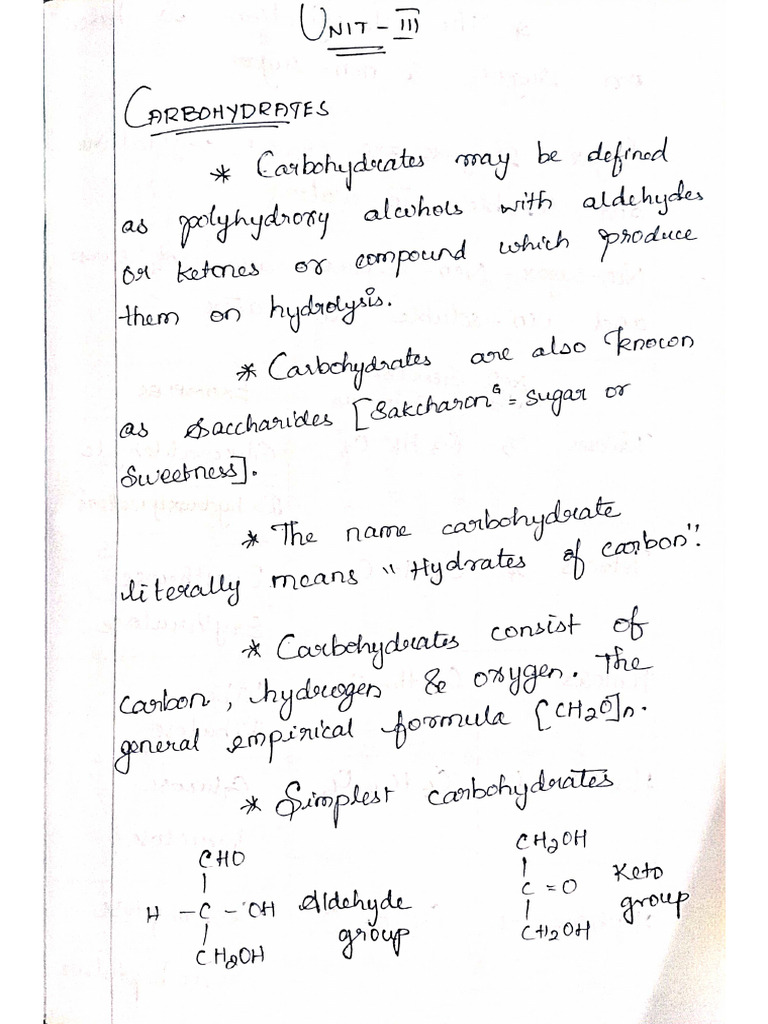 UNIT - III
CARBOHYDRATES
* Carbohydrates may be defined
as polyhydroxy alcohols with aldehydes
or ketones or compound which produce
them on hydrolysis.
* Carbohydrates are also known
as Saccharides [Sakcharon G = sugar or
Sweetness].
* The name carbohydrate
literally means "Hydrates of carbon".
* Carbohydrates consist of
carbon, hydrogen & oxygen. The
general empirical formula [CH2O]n.
* Simplest carbohydrates
CHO
|
H - C - OH Aldehyde
| group
CH2OH
CH2OH
|
C = O Keto
| group
CH2OH